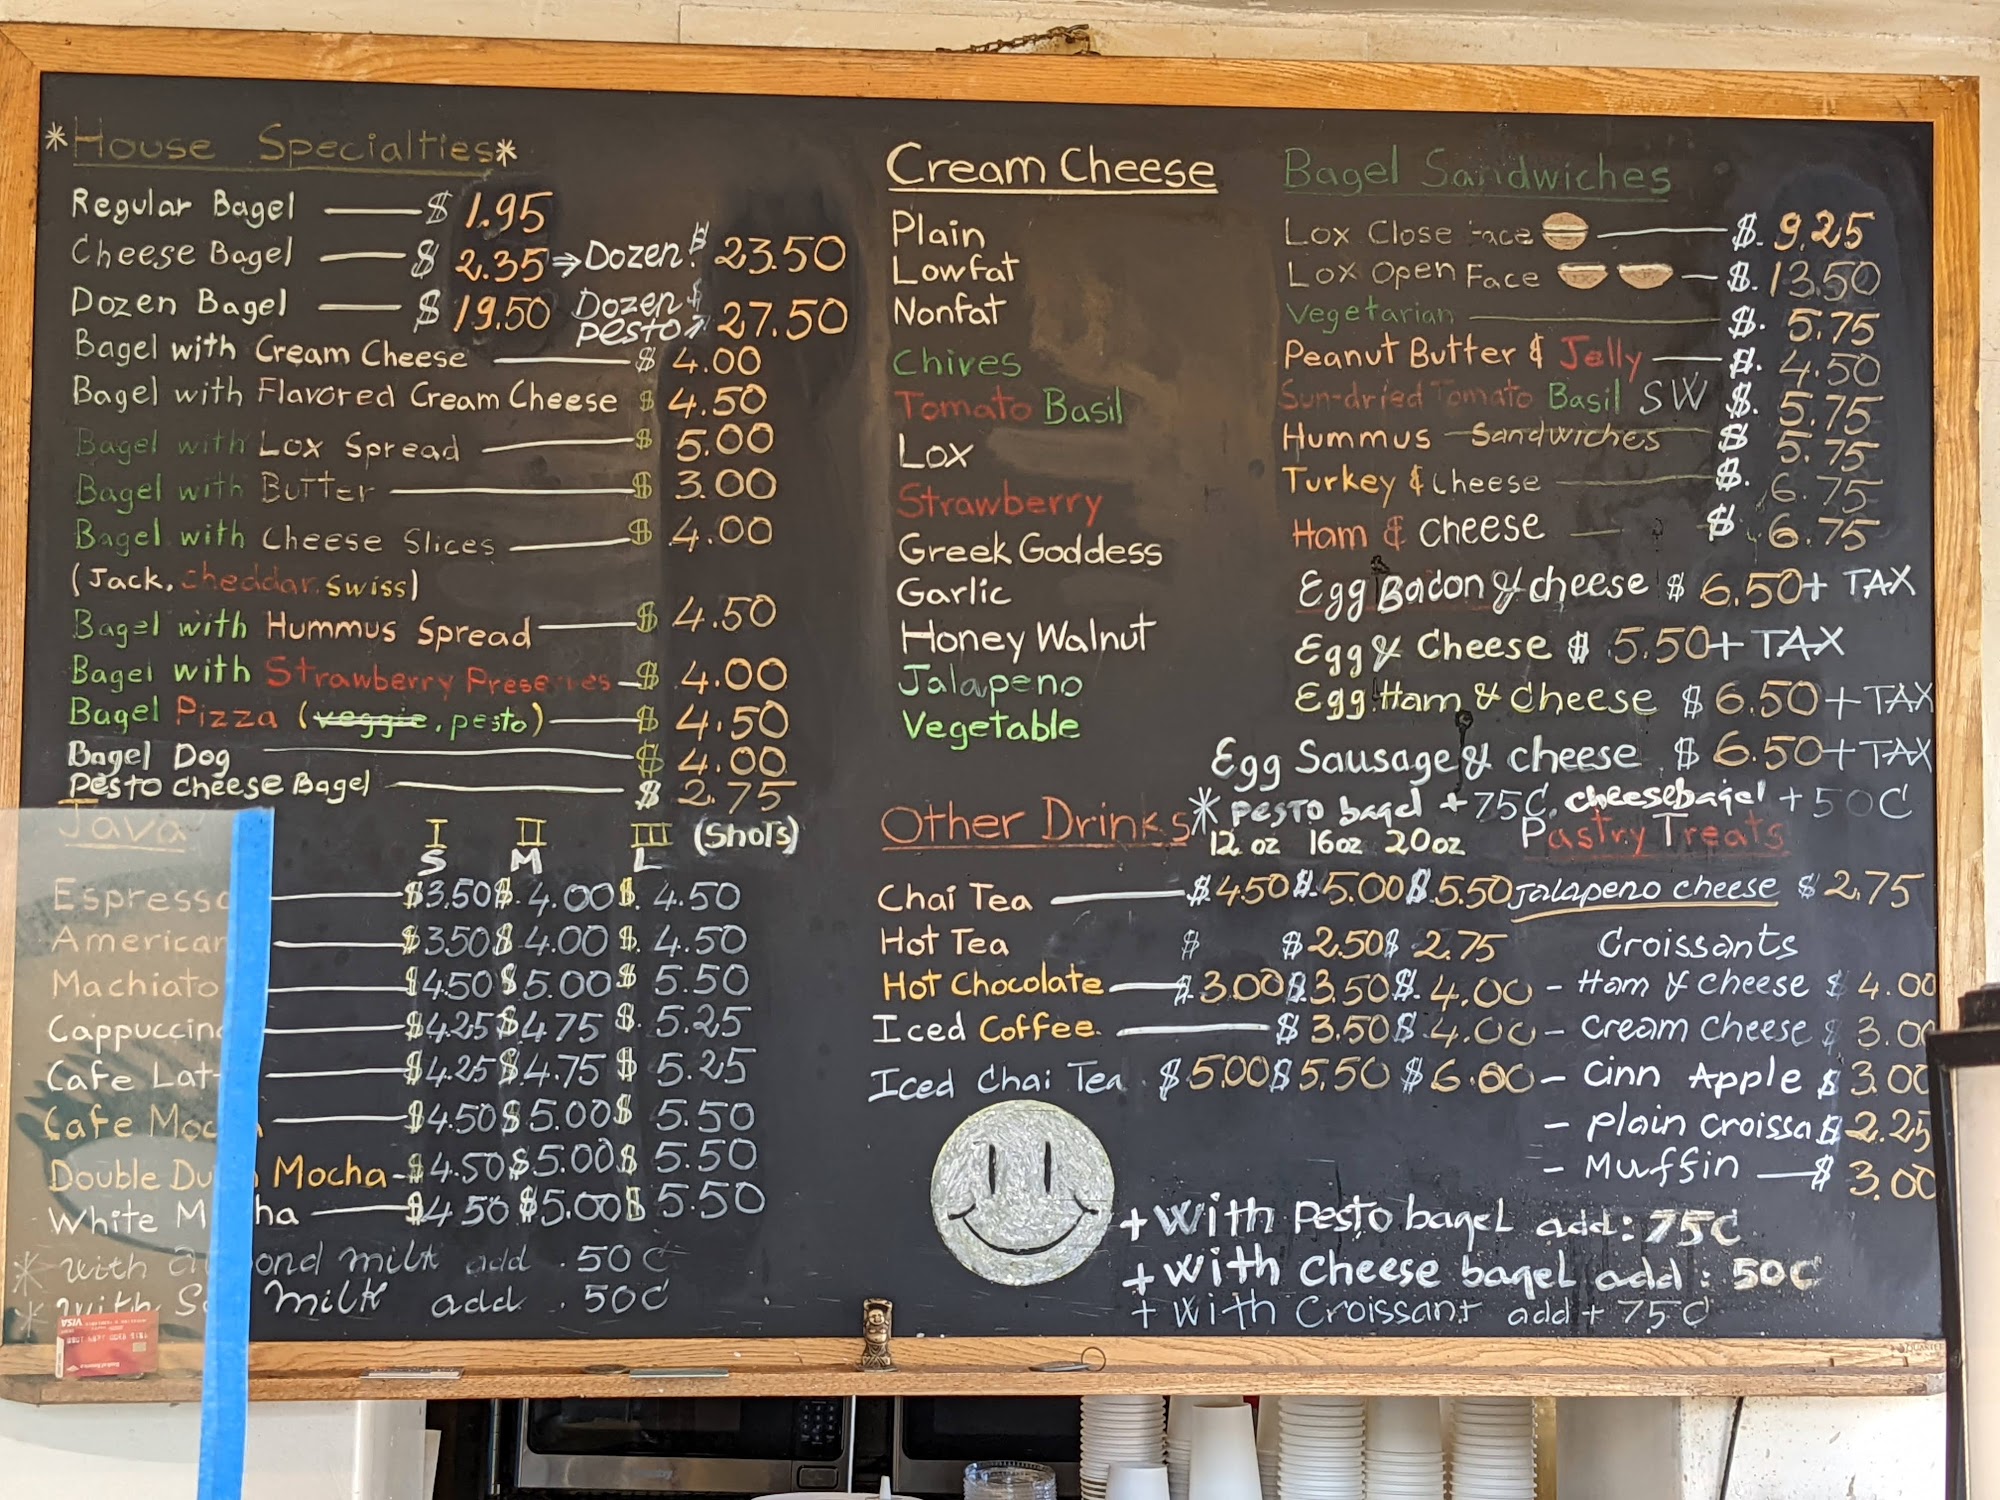 *House Specialties*
Regular Bagel $ 1.95
Cheese Bagel $ 2.35 ⇒ Dozen: $ 23.50
Dozen Bagel $ 19.50 Dozen pesto $ 27.50
Bagel with Cream Cheese $ 4.00
Bagel with Flavored Cream Cheese $ 4.50
Bagel with Lox Spread $ 5.00
Bagel with Butter $ 3.00
Bagel with Cheese Slices $ 4.00
(Jack, cheddar, swiss)
Bagel with Hummus Spread $ 4.50
Bagel with Strawberry Preserves $ 4.00
Bagel Pizza (veggie, pesto) $ 4.50
Bagel Dog $ 4.00
Pesto cheese Bagel $ 2.75
Java
I II III (Shots)
S M L
Espresso $3.50 $. 4.00 $. 4.50
American $3.50 $ 4.00 $. 4.50
Machiato $4.50 $5.00 $ 5.50
Cappuccino $4.25 $4.75 $. 5.25
Cafe Lat $4.25 $4.75 $ 5.25
Cafe Mocha $4.50 $5.00 $ 5.50
Double Du Mocha $4.50 $5.00 $ 5.50
White M ha $4.50 $5.00 $ 5.50
* with a ond milk add .50¢
* with So milk add .50¢
VISA
Cream Cheese
Plain
Lowfat
Nonfat
Chives
Tomato Basil
Lox
Strawberry
Greek Goddess
Garlic
Honey Walnut
Jalapeno
Vegetable
Bagel Sandwiches
Lox Close Face $. 9.25
Lox Open Face $. 13.50
Vegetarian $. 5.75
Peanut Butter & Jelly $. 4.50
Sun-dried Tomato Basil SW $. 5.75
Hummus Sandwiches $ 5.75
Turkey & Cheese $. 6.75
Ham & Cheese $ 6.75
Egg Bacon & cheese $ 6.50 + TAX
Egg & Cheese $ 5.50 + TAX
Egg Ham & Cheese $ 6.50 + TAX
Egg Sausage & cheese $ 6.50 + TAX
* pesto bagel + 75¢, cheesebagel + 50¢
Other Drinks
12 oz 16oz 20oz
Chai Tea $.4.50 $.5.00 $5.50
Hot Tea $ $2.50 $ 2.75
Hot Chocolate $.3.00 $.3.50 $. 4.00
Iced Coffee $ 3.50 $ 4.00
Iced Chai Tea $5.00 $5.50 $6.00
Pastry Treats
Jalapeno cheese $2.75
Croissants
- Ham & cheese $ 4.00
- Cream Cheese $ 3.00
- Cinn Apple $ 3.00
- Plain Croissa $ 2.25
- Muffin $ 3.00
+ With Pesto bagel add: 75¢
+ With Cheese bagel add: 50¢
+ With Croissant add + 75¢